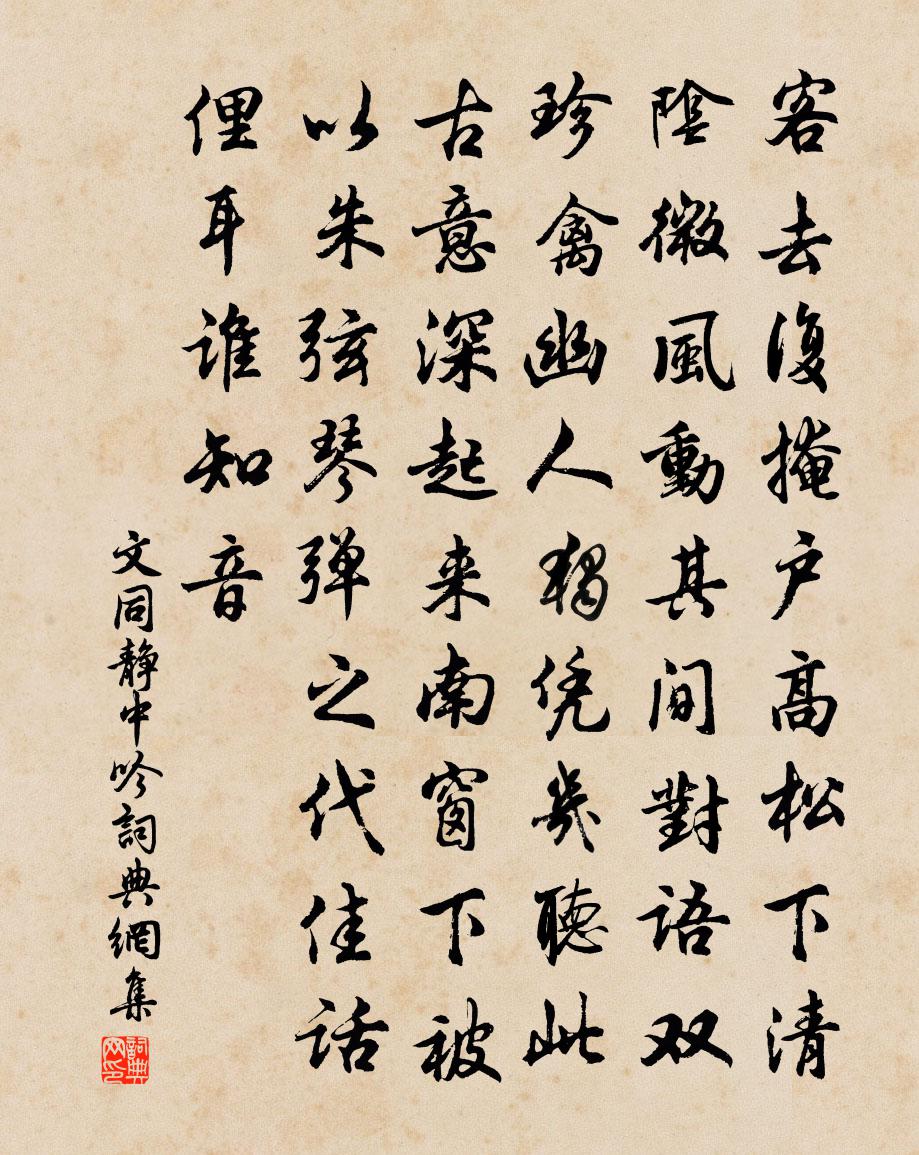 客去復掩戶高松下清
陰微風動其間對語双
珍禽幽人獨凭几聽此
古意深起来南窗下被
以朱弦琴弹之代佳话
俚耳谁知音
文同静中吟詞典網集
詞典网印